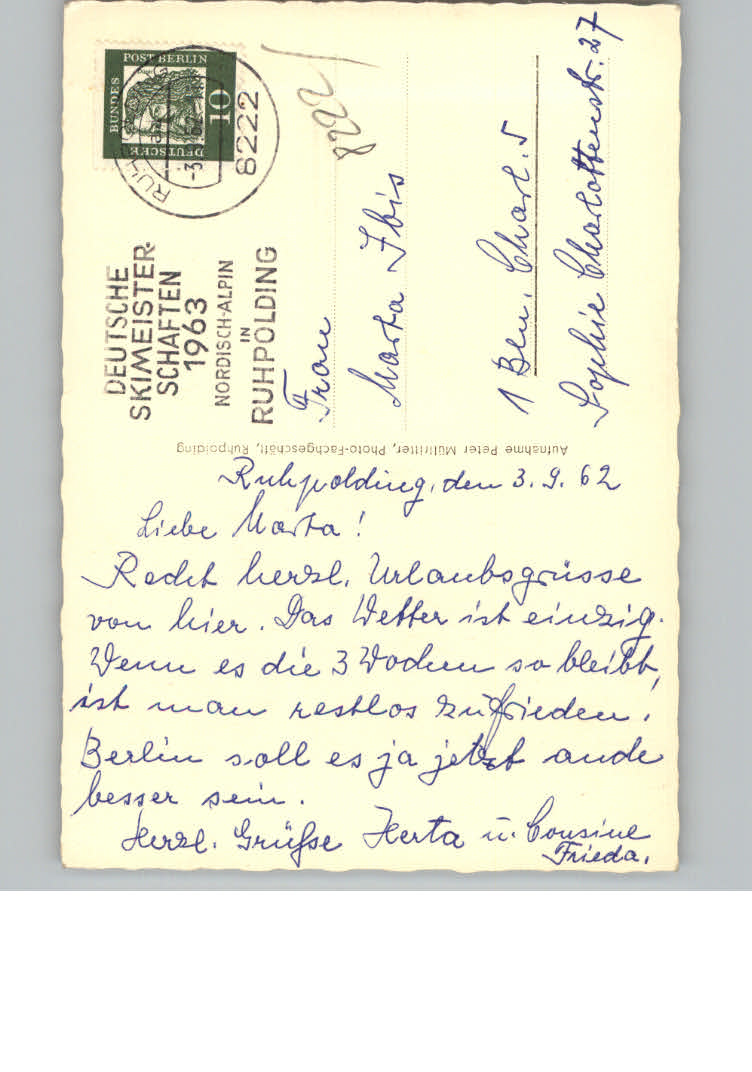 DEUTSCHE BUNDESPOST BERLIN
10
8222
8222
DEUTSCHE
SKIMEISTER-
SCHAFTEN
1963
NORDISCH-ALPIN
IN
RUHPOLDING
Frau
Marta Ibis
1 Bln. Charl. 5
Sophie Charlottenstr. 27
Aufnahme Peter Müllritter, Photo-Fachgeschäft, Ruhpolding
Ruhpolding, den 3. 9. 62
Liebe Marta!
Recht herzl. Urlaubsgrüsse
von hier. Das Wetter ist einzig.
Wenn es die 3 Wochen so bleibt,
ist man restlos zufrieden.
Berlin soll es ja jetzt
besser sein.
Herzl. Grüße Herta u. Cousine
Frieda.